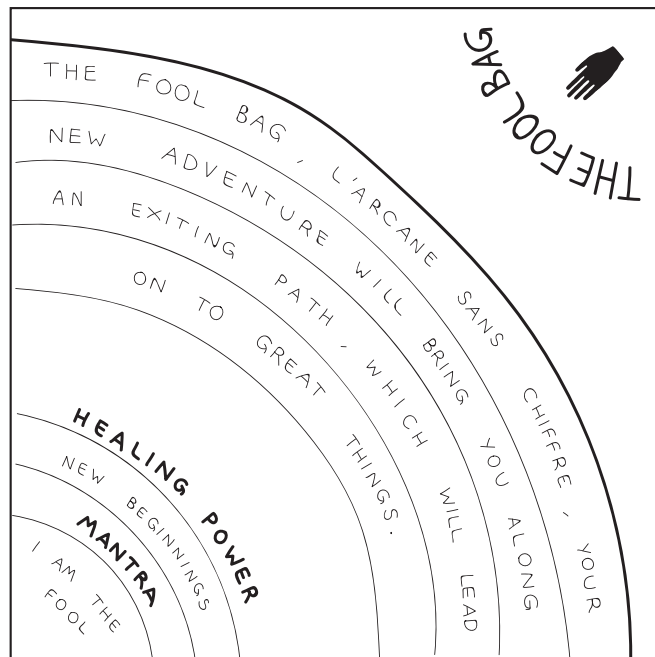 THE FOOL BAG
THE FOOL BAG, L'ARCANE SANS CHIFFRE, YOUR
NEW ADVENTURE WILL BRING YOU ALONG
AN EXITING PATH, WHICH WILL LEAD
ON TO GREAT THINGS.
HEALING POWER
NEW BEGINNINGS
MANTRA
I AM THE
FOOL